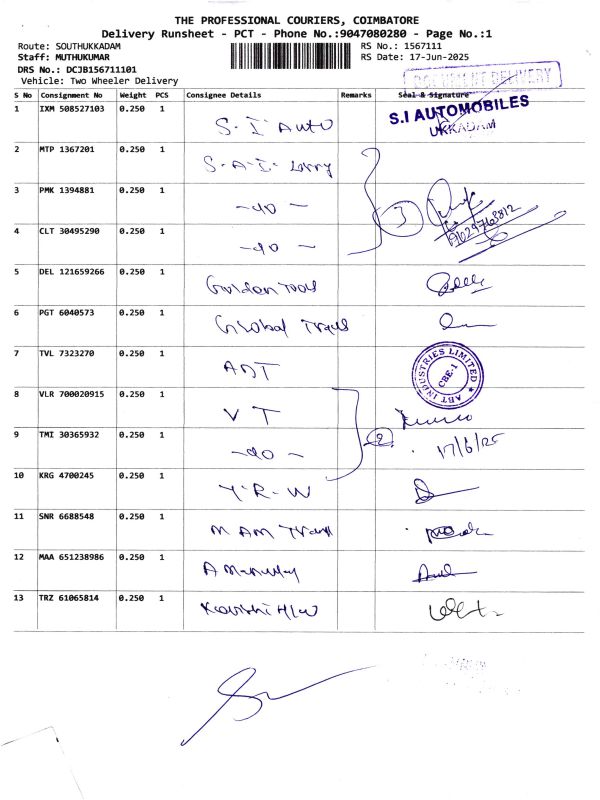 THE PROFESSIONAL COURIERS, COIMBATORE
Delivery Runsheet - PCT - Phone No.:9047080280 - Page No.:1
Route: SOUTHUKKADAM RS No.: 1567111
Staff: MUTHUKUMAR RS Date: 17-Jun-2025
DRS No.: DCJB156711101
Vehicle: Two Wheeler Delivery
DOCUMENT DELIVERY
S No Consignment No Weight PCS Consignee Details Remarks Seal & Signature
1 IXM 508527103 0.250 1 S.I Auto S.I AUTOMOBILES
UKKADAM
2 MTP 1367201 0.250 1 S.A.I. Lorry
3 PMK 1394881 0.250 1 -do- 3
4 CLT 30495290 0.250 1 -do-
5 DEL 121659266 0.250 1 Golden Tools
6 PGT 6040573 0.250 1 Global Travels
7 TVL 7323270 0.250 1 ABT ABT INDUSTRIES LIMITED CBE-1
8 VLR 700020915 0.250 1 V T
9 TMI 30365932 0.250 1 -do- 2 17/6/25
10 KRG 4700245 0.250 1 Y.R.W
11 SNR 6688548 0.250 1 MAM
12 MAA 651238986 0.250 1
13 TRZ 61065814 0.250 1 H/W